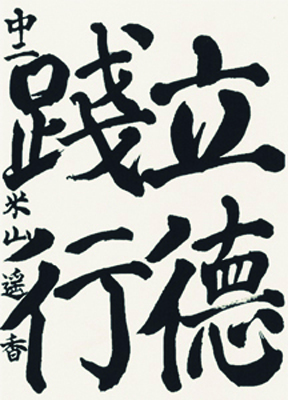 立德
踐行
中二 米山遥香